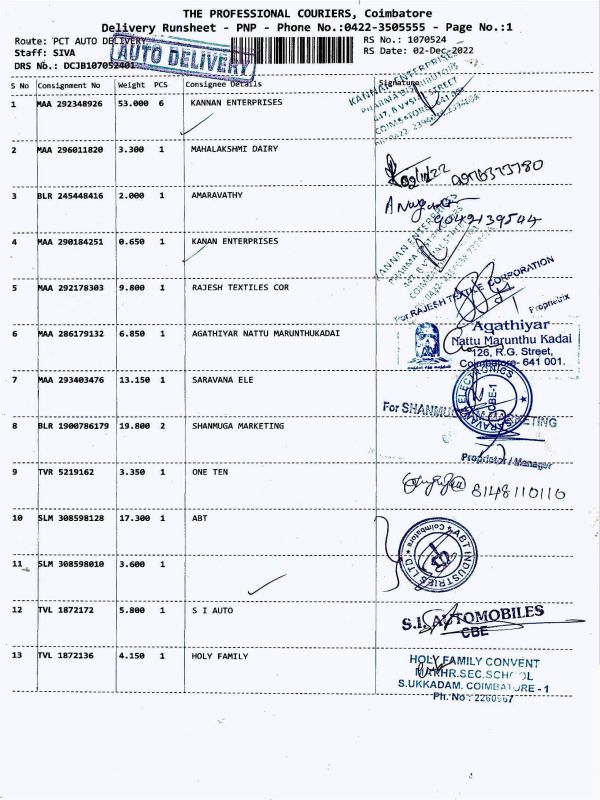 THE PROFESSIONAL COURIERS, Coimbatore
Delivery Runsheet - PNP - Phone No.:0422-3505555 - Page No.:1
Route: PCT AUTO DELIVERY
RS No.: 1070524
Staff: SIVA
RS Date: 02-Dec-2022
DRS No.: DCJB107052401
AUTO DELIVERY
S No Consignment No Weight PCS Consignee Details Signature
1 MAA 292348926 53.000 6 KANNAN ENTERPRISES
KANNAN ENTERPRISES
PHARMA DISTRIBUTORS
COIMBATORE
2 MAA 296011820 3.300 1 MAHALAKSHMI DAIRY
3 BLR 245448416 2.000 1 AMARAVATHY
9042139544
4 MAA 290184251 0.650 1 KANAN ENTERPRISES
KANNAN ENTERPRISES
5 MAA 292178303 9.800 1 RAJESH TEXTILES COR
For RAJESH TEXTILE CORPORATION
Proprietrix
6 MAA 286179132 6.850 1 AGATHIYAR NATTU MARUNTHUKADAI
Agathiyar
Nattu Marunthu Kadai
126, R.G. Street,
Coimbatore- 641 001.
7 MAA 293403476 13.150 1 SARAVANA ELE
SARAVANA ELECTRONICS
CBE-1
8 BLR 1900786179 19.800 2 SHANMUGA MARKETING
For SHANMUGAM MARKETING
Proprietor / Manager
9 TVR 5219162 3.350 1 ONE TEN
8148110110
10 SLM 308598128 17.300 1 ABT
ABT INDUSTRIES LTD
Coimbatore
11 SLM 308598010 3.600 1
12 TVL 1872172 5.800 1 S I AUTO
S.I. AUTOMOBILES
CBE
13 TVL 1872136 4.150 1 HOLY FAMILY
HOLY FAMILY CONVENT
MATHR.SEC.SCHOOL
S.UKKADAM. COIMBATORE - 1
Ph. No : 2260967